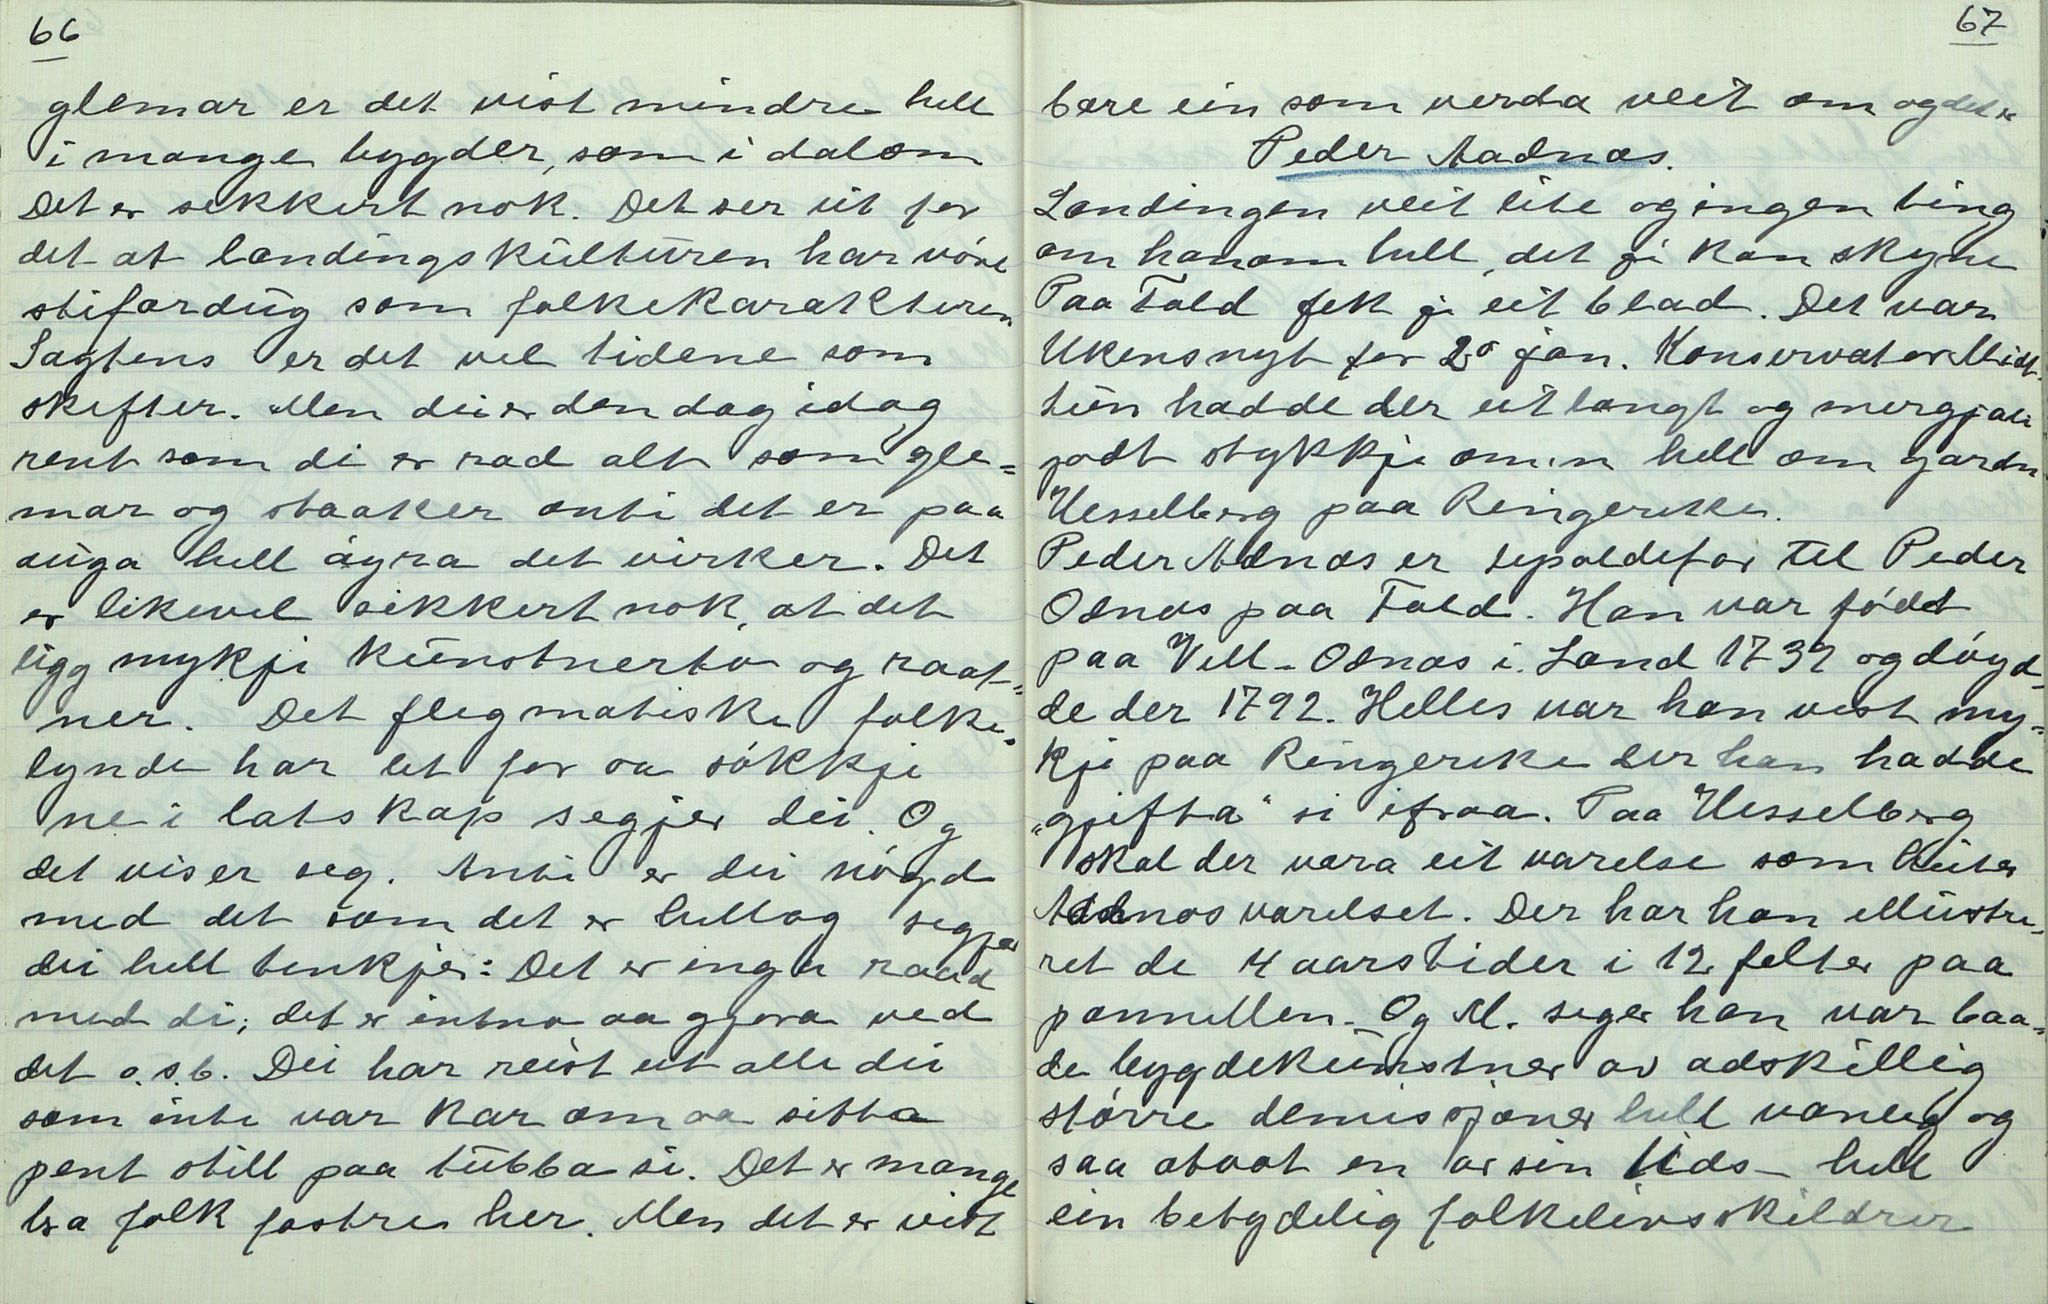 66
glemar er det vist mindre hell
i mange bygder, som i dalom
Det er sekkert nok. Det ser ut for
det at landingskulturen har vóre
stifordug som folkekarakteren
Sagtens er det vel tidene som
skifter. Men dei er den dag idag
rent som di er rad alt som gle=
mar og staaker onti det er paa
auga hell øyra det virker. Det
er likevel sikkert nok, at det
ligg mykji kunstnerto og raat=
ner. Det flegmatiske folke=
lynde har let for aa sókkje
ne i latskap segjer dei. Og
det viser seg. Anti er dei nógd
med det som det er hellog segjer
dei hell tenkjer: Det er inga raad
med di; det er intno aa gjera ved
det o.s.b. Dei har reist ut alle dei
som inte var kar om aa sitta
pent still paa tubba si. Det er mange
bra folk fostre her. Men det er vist
67
bare ein som verda veit om og det er
Peder Aadnæs.
Landingen veit lite og ingen ting
om honom hell, det ji kan skyne
Paa Fald fek ji eit blad. Det var
Ukens nyt for 20 jan. Konservator Midt-
tun hadde der eit langt og mergjali
godt stykkji om'n hell om garden
Hesselberg paa Ringerike.
Peder Adnæs er tipoldefar til Peder
Odnæs paa Fald. Han var fódt
paa Vell-Odnæs i Land 1739 og dóyd-
de der 1792. Helles var han vist my=
kji paa Ringerike der han hadde
"gjifta" si ifraa. Paa Hesselberg
skal der vara eit varelse som heiter
Adnæsvarelset. Der har han illustre=
ret de 4 aarstider i 12 felter paa
pannellen. Og M. seger han var baa=
de bygdekunstner av adskillig
stórre demissjoner hell vanleg og
saa atvat en av sin tids hell
ein betydelig folkelivsskildrer